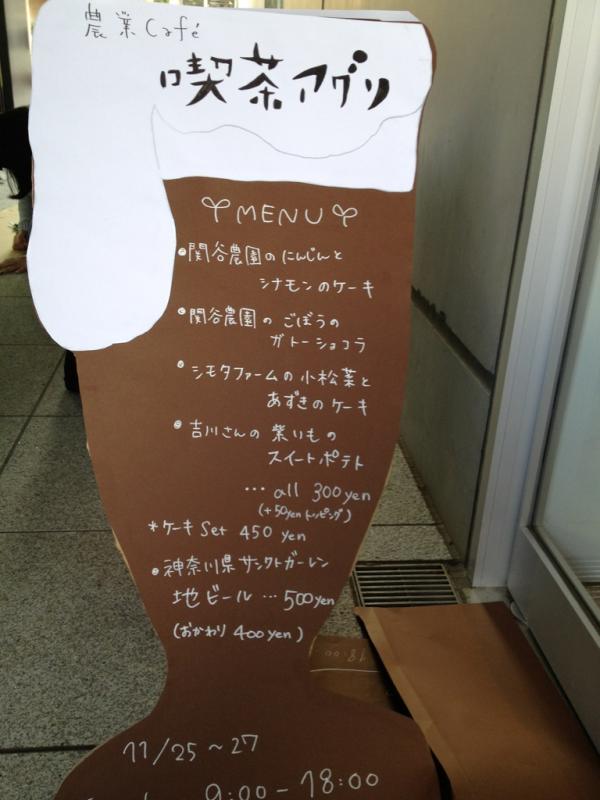 農業Café
喫茶アグリ
MENU
•関谷農園のにんじんと
シナモンのケーキ
•関谷農園のごぼうの
ガトーショコラ
•シモタファームの小松菜と
あずきのケーキ
•吉川さんの紫いもの
スイートポテト
… all 300yen
(+50yenトッピング)
*ケーキ Set 450 yen
•神奈川県サンクトガーレン
地ビール … 500yen
(おかわり 400yen)
18:00
11/25～27
9:00-18:00